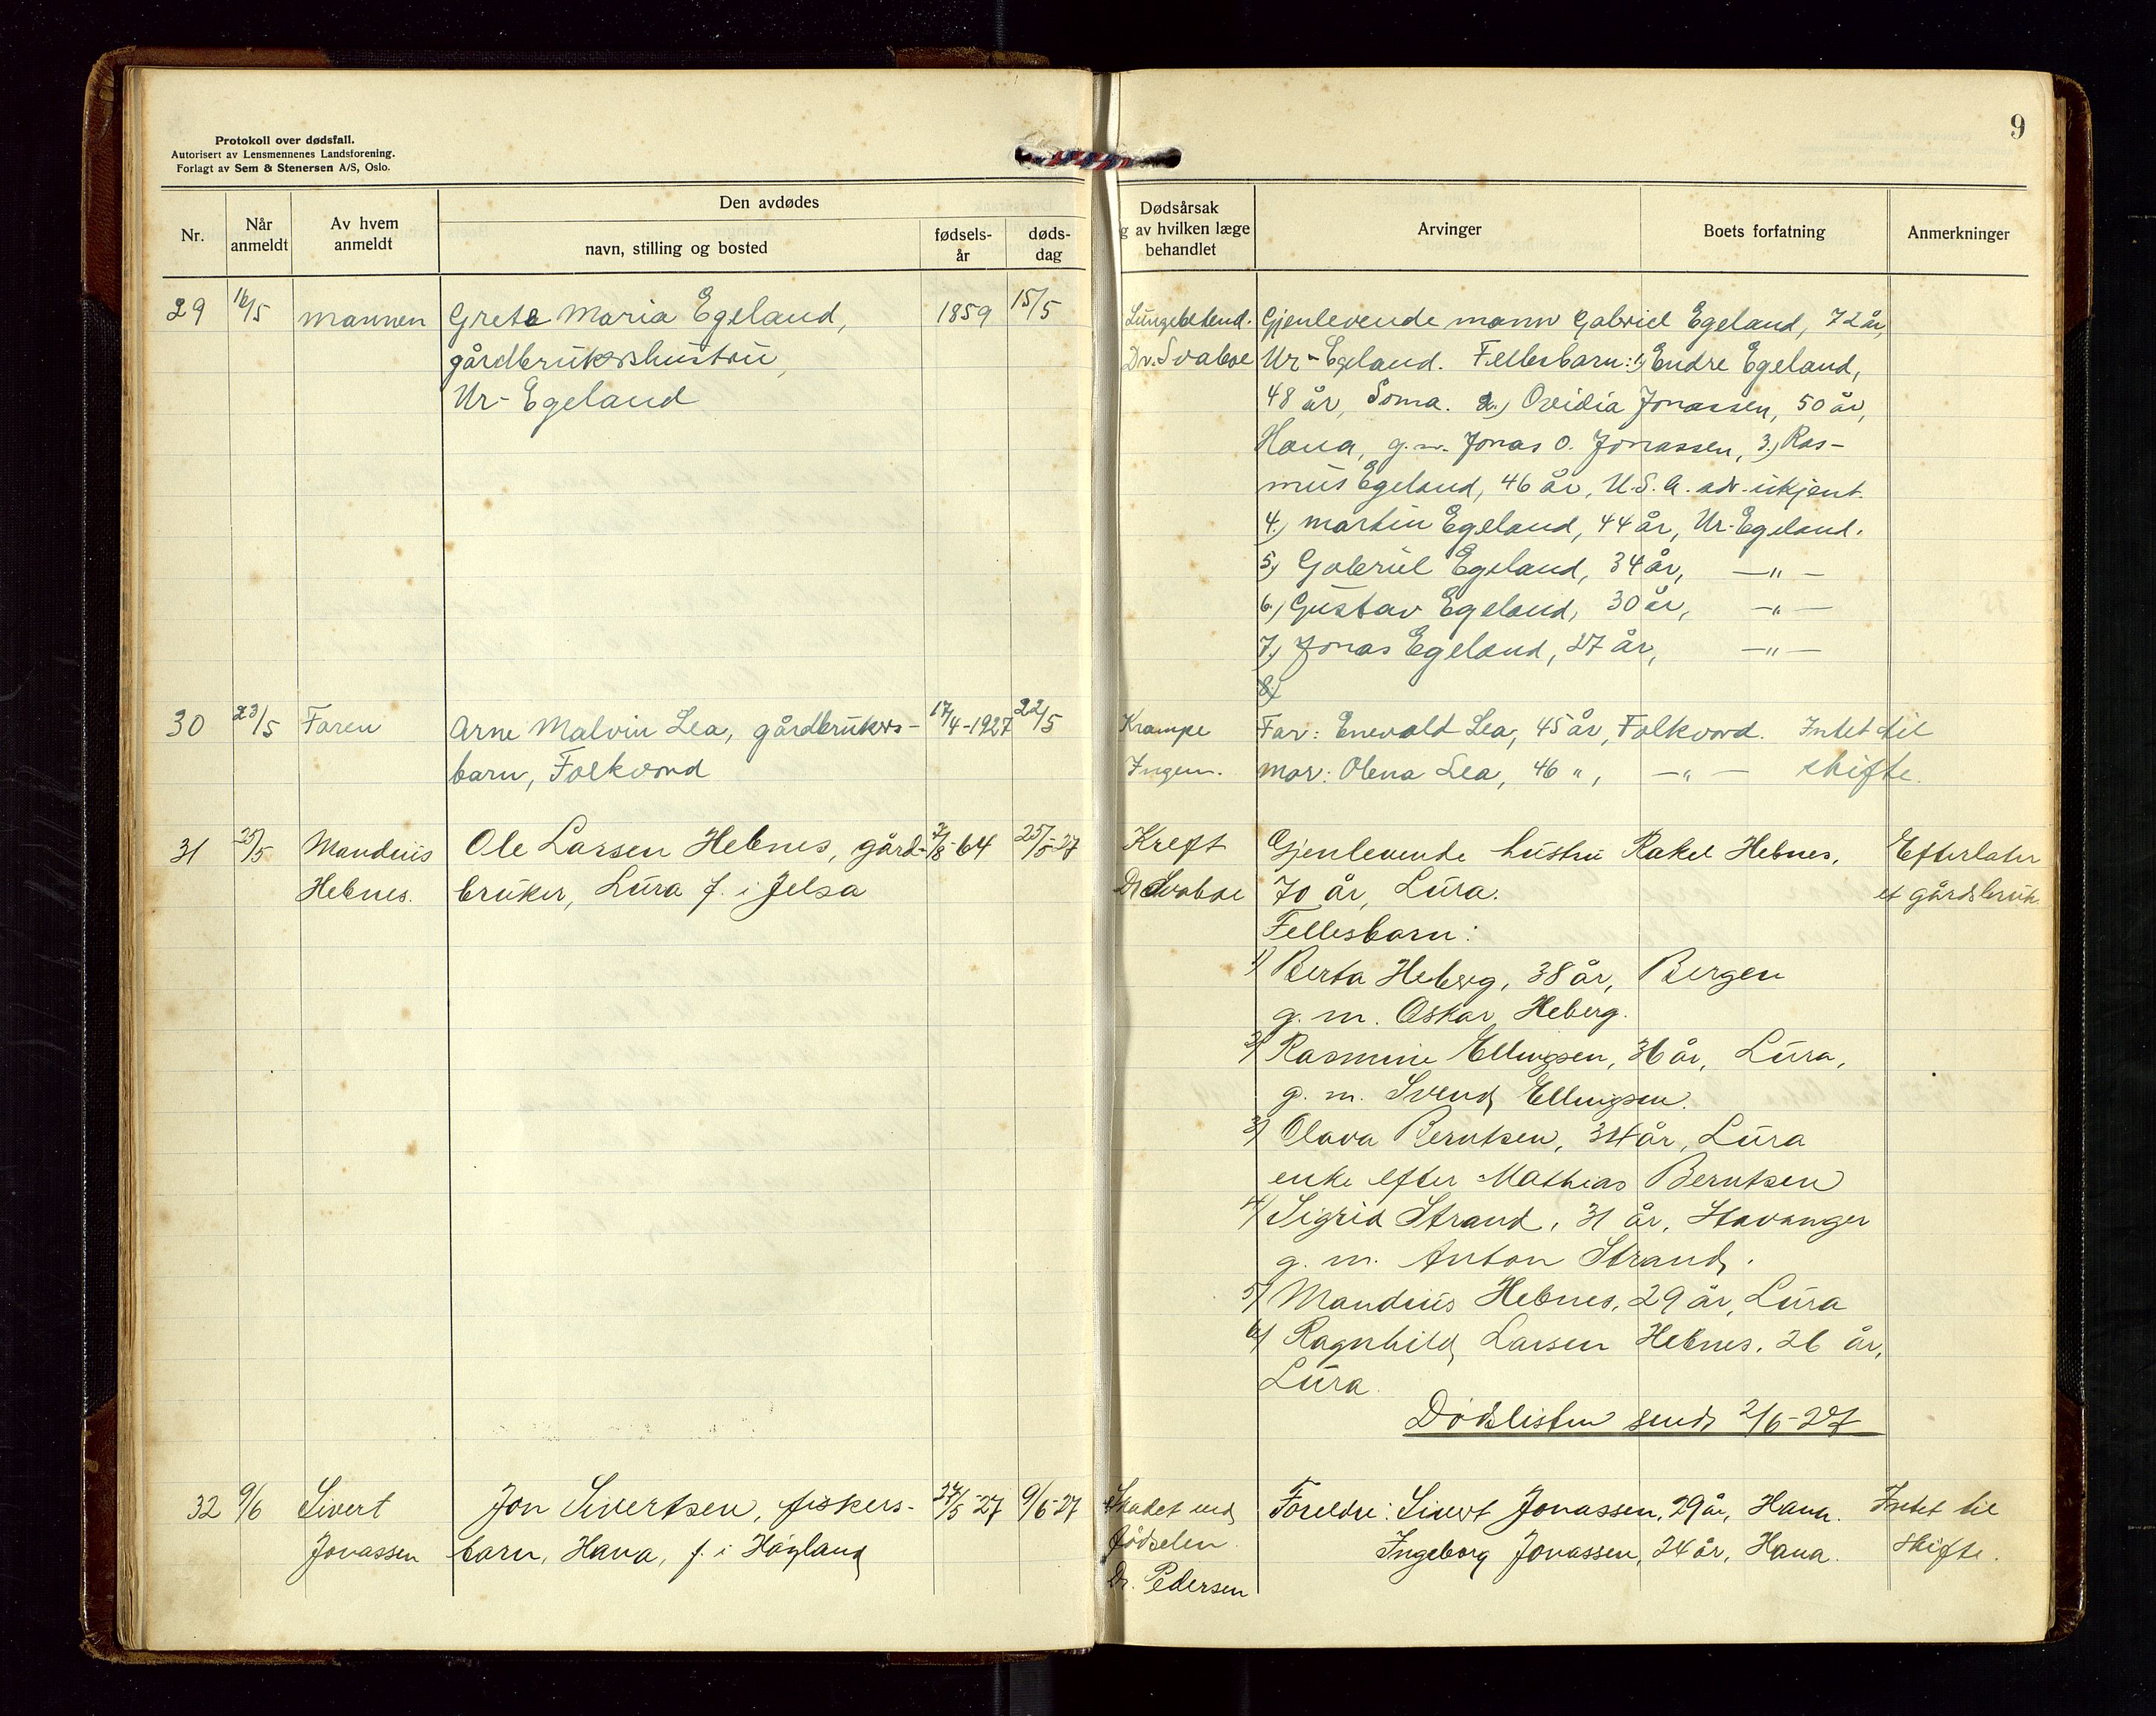 Protokoll over dødsfall.
Autorisert av Lensmennenes Landsforening.
Forlagt av Sem & Stenersen A/S, Oslo.
Nr.
Når anmeldt
Av hvem anmeldt
Den avdødes
navn, stilling og bosted
fødselsår
dødsdag
29 16/5 mannen Grete Maria Egeland, 1859 15/5
gårdbrukershustru,
Ur-Egeland
30 23/5 Faren Arne Malvin Lea, gårdbrukers- 17/4-1927 22/5
barn, Folkvord
31 25/5 Mandius Ole Larsen Hebnes, gård- 7/8-64 25/5-27
Hebnes. bruker, Lura f. i Jelsa
32 9/6 Sivert Jon Sivertsen, fiskers- 27/5-27 9/6-27
Jonassen barn, Hana, f. i Høyland
9
Dødsårsak
g av hvilken læge
behandlet
Arvinger
Boets forfatning
Anmerkninger
Lungebetend. Gjenlevende mann Gabriel Egeland, 72 år,
Dr. Svaboe Ur-Egeland. Fellesbarn: 1) Endre Egeland,
48 år, Soma. 2.) Ovidia Jonassen, 50 år,
Hana, g.m. Jonas O. Jonassen, 3.) Ras-
mus Egeland, 46 år, U.S.A. adr. ukjent.
4.) Martin Egeland, 44 år, Ur-Egeland.
5.) Gabriel Egeland, 34 år, —"—
6.) Gustav Egeland, 30 år, —"—
7.) Jonas Egeland, 27 år, —"—
8)
Krampe Far: Enevald Lea, 45 år, Folkvord. Intet til
Ingen. Mor: Olena Lea, 46 ", —"— skifte.
Kreft Gjenlevende hustru Rakel Hebnes, Efterlater
Dr Svaboe 70 år, Lura. et gårdsbruk
Fellesbarn:
1) Berta Heberg, 38 år, Bergen
g. m. Oskar Heberg.
2) Rasmine Ellingsen, 36 år, Lura,
g. m. Svend Ellingsen.
3) Olava Berntsen, 34 år, Lura
enke efter Mathias Berntsen
4) Sigrid Strand, 31 år, Stavanger
g. m. Anton Strand.
5) Mandius Hebnes, 29 år, Lura
6) Ragnhild Larsen Hebnes, 26 år,
Lura.
Dødslisten sendt 2/6-27
Skadet ved Foreldre: Sivert Jonassen, 29 år, Hana. Intet til
fødselen. Ingeborg Jonassen, 24 år, Hana. skifte.
Dr. Pedersen